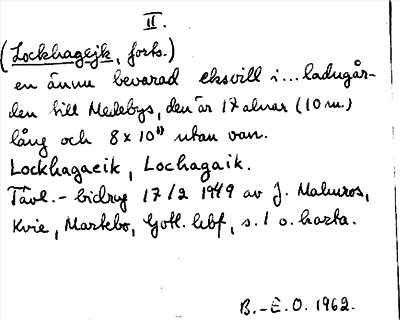 II.
(Lockhagejk, forts.)
en ännu bevarad eksvill i... ladugår-
den till Medebys, den är 17 alnar (10 m.)
lång och 8 x 10" utan van.
Lockhagaeik, Lochagaik.
Tävl.- bidrag 17/2 1949 av J. Malmros,
Kvie, Martebo, Gotl. hbf, s. 1 o. karta.
B.-E.O. 1962.